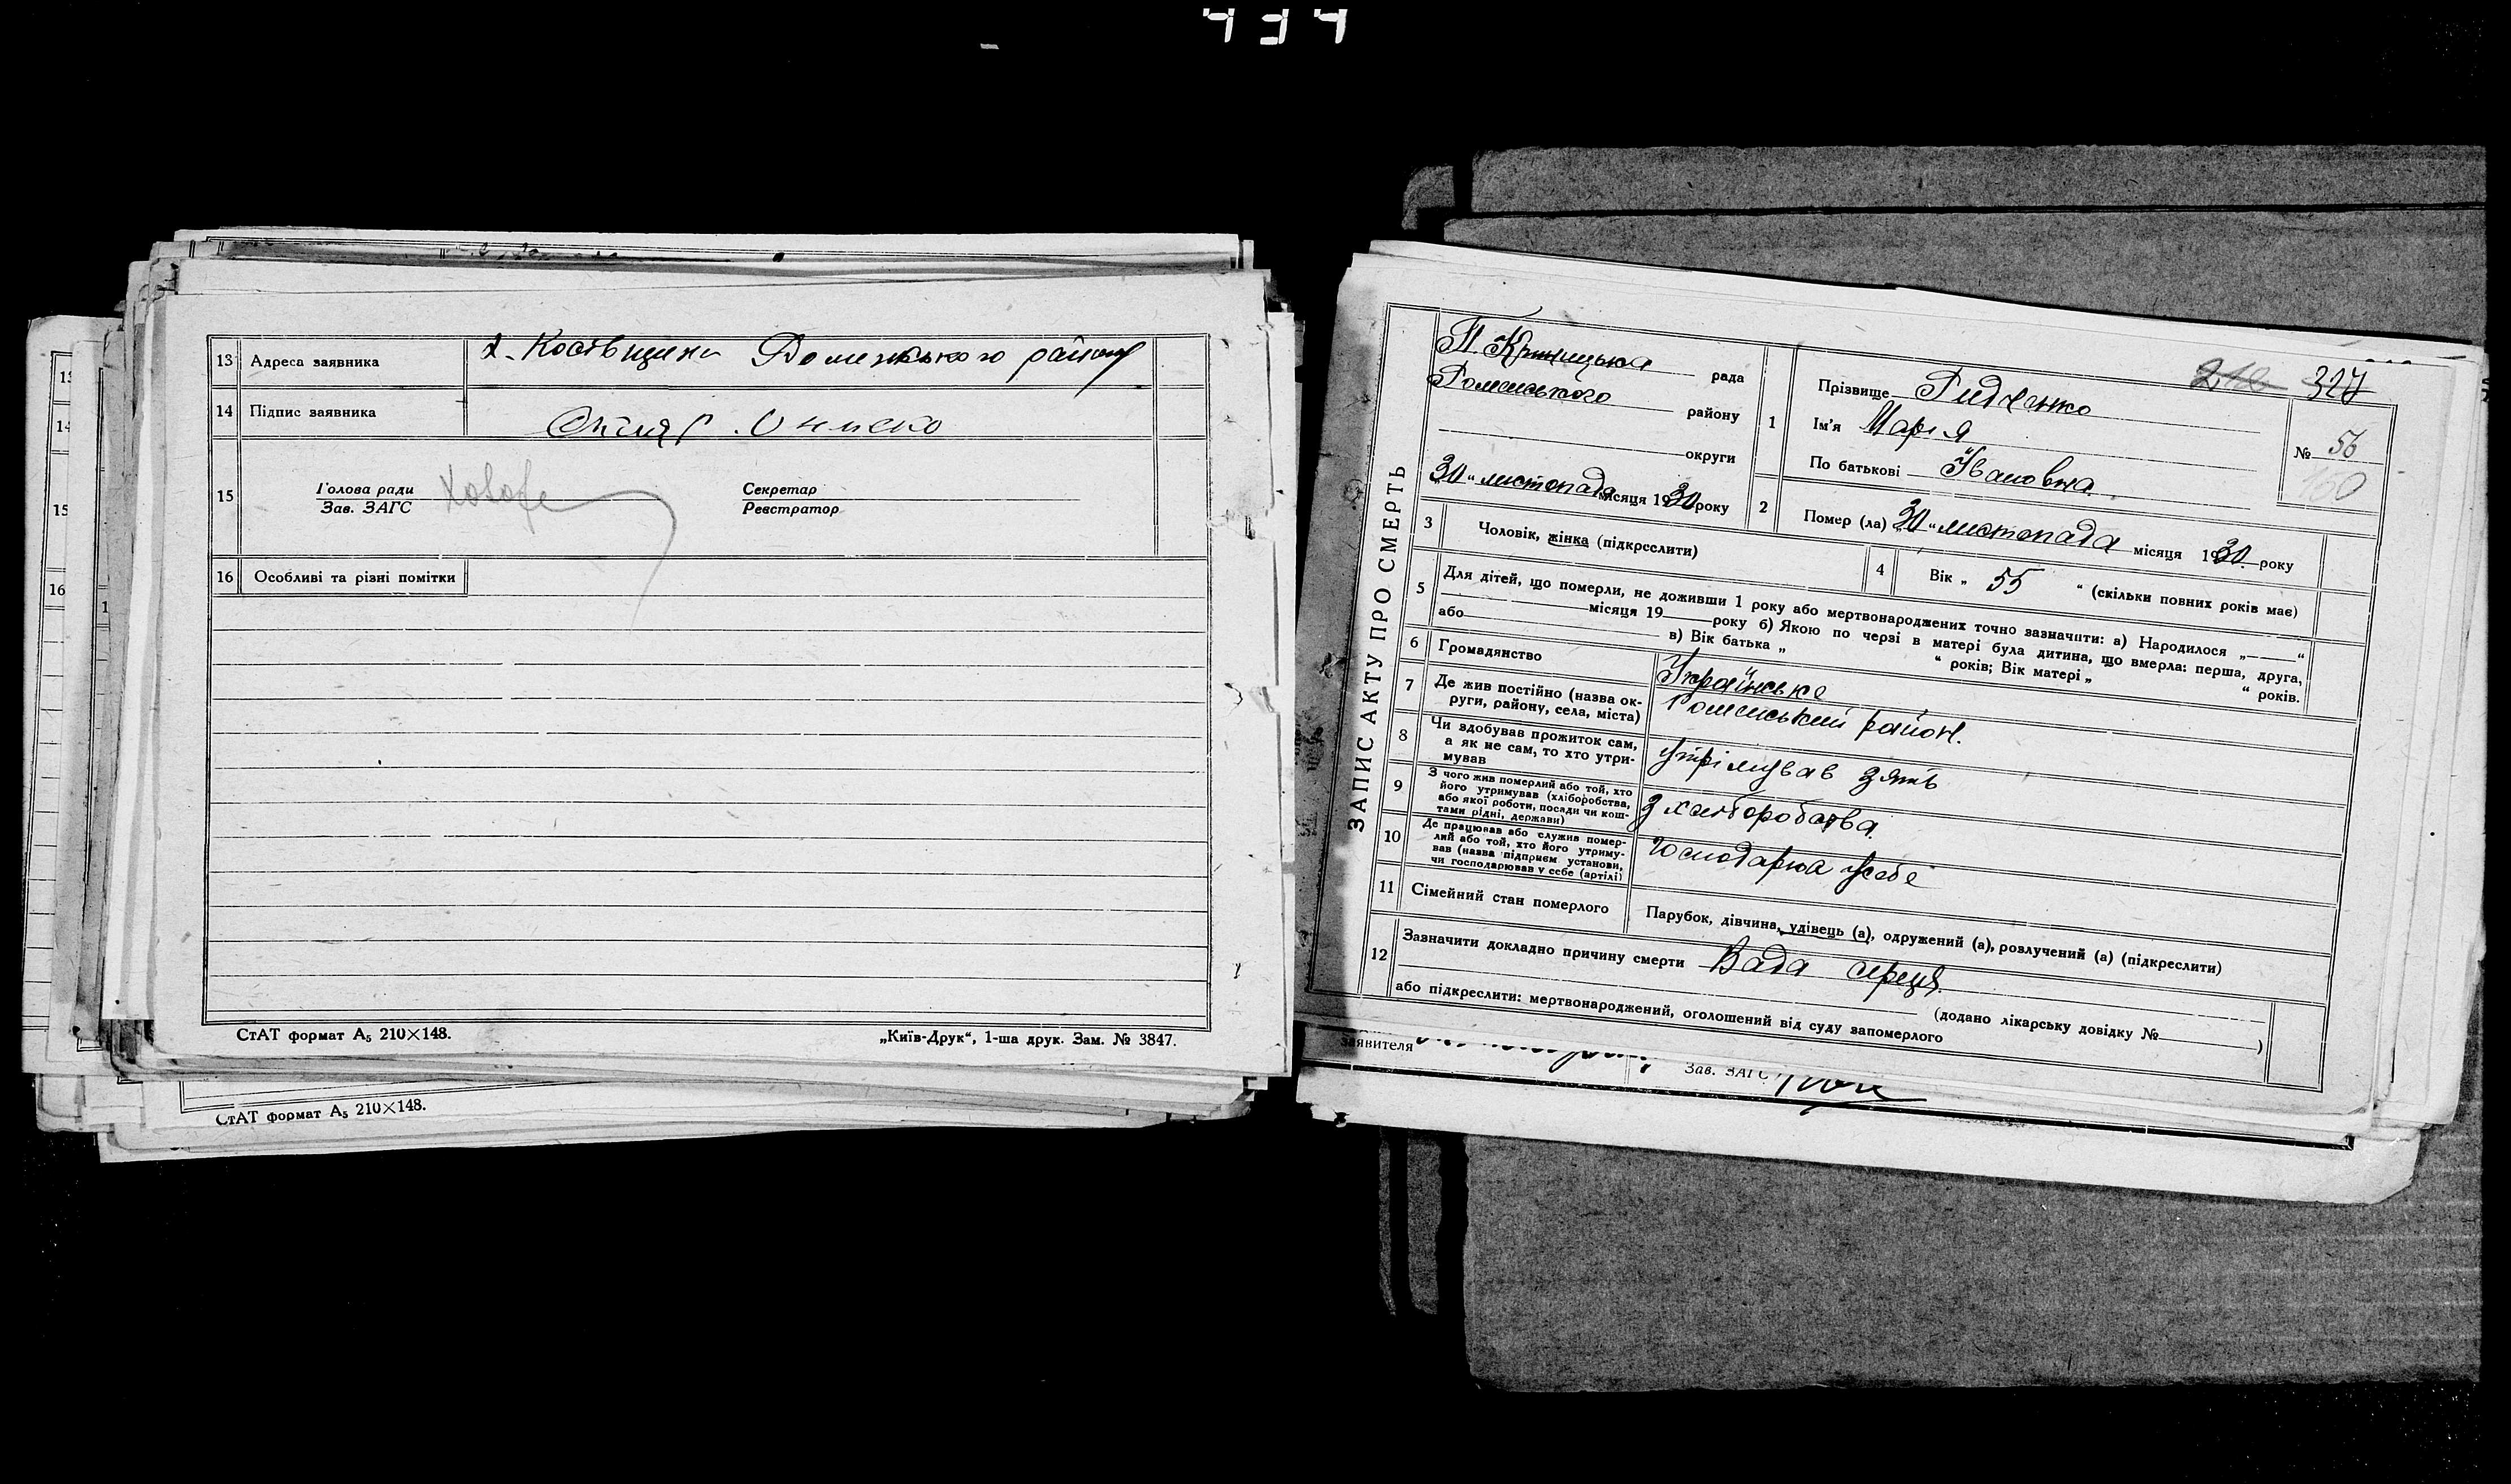 434
13 Адреса заявника х. Костівщина Роменського району
14 Підпис заявника
15 Голова ради
Зав. ЗАГС
Секретар
Реєстратор
16 Особливі та різні помітки
СтАТ формат А5 210×148.
„Київ-Друк“, 1-ша друк. Зам. № 3847.
СтАТ формат А5 210×148.
ЗАПИС АКТУ ПРО СМЕРТЬ
рада
Роменського району
округи
30 “ листопада місяця 1930 року
327
1 Прізвище
Ім'я Марія
По батькові Івановна
№ 56
160
2 Помер (ла) „30“ листопада місяця 1930 року
3 Чоловік, жінка (підкреслити)
4 Вік „ 55 “ (скільки повних років має)
5 Для дітей, що померли, не доживши 1 року або мертвонароджених точно зазначити: а) Народилося „ “
місяця 19 року б) Якою по черзі в матері була дитина, що вмерла: перша, друга,
або в) Вік батька „ “ років; Вік матері „ “ років.
6 Громадянство Українське
7 Де жив постійно (назва округи, району, села, міста) Роменський район.
8 Чи здобував прожиток сам, а як не сам, то хто утримував утрімував зять
9 З чого жив померлий або той, хто його утримував (хліборобства, або якої роботи, посади чи коштами рідні, держави) з хліборобства
10 Де працював або служив померлий або той, хто його утримував (назва підприєм установи, чи господарював у себе (артілі) господарюа усебе
11 Сімейний стан померлого Парубок, дівчина, удівець (а), одружений (а), розлучений (а) (підкреслити)
12 Зазначити докладно причину смерти Вада серця
(додано лікарську довідку № )
або підкреслити: мертвонароджений, оголошений від суду запомерлого
заявителя
Зав. ЗАГС